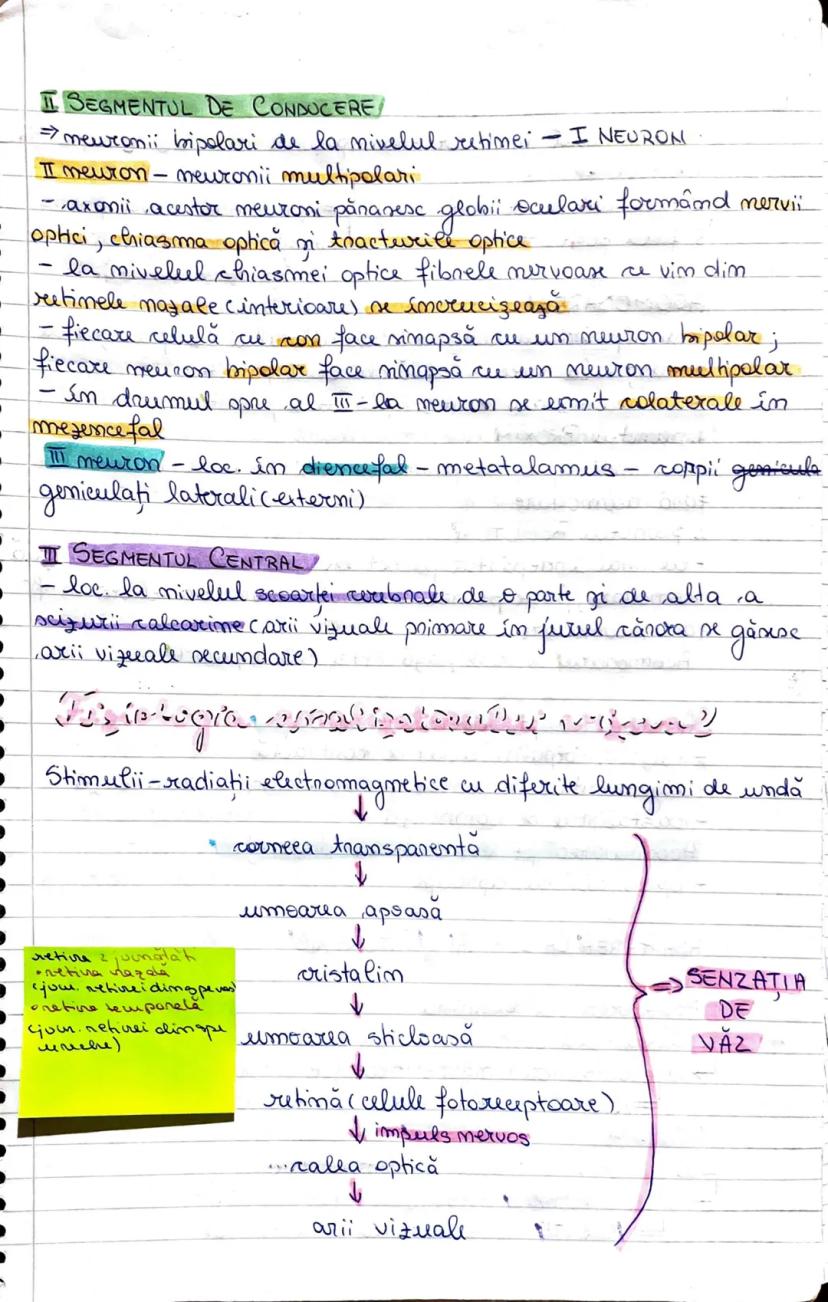 II SEGMENTUL DE CONDUCERE
⇒ neuronii bipolari de la nivelul retinei – I NEURON
II neuron – neuronii multipolari
– axonii acestor neuroni părăsesc globii oculari formând nervii
optici, chiasma optică și tracturile optice
– la nivelul chiasmei optice fibrele nervoase ce vin din
retinele nazale (interioare) se încrucizează
– fiecare celulă cu con face sinapsă cu un neuron bipolar;
fiecare neuron bipolar face sinapsă cu un neuron multipolar
– în drumul spre al III-lea neuron se emit colaterale în
mezencefal
III neuron – loc. în diencefal – metatalamus – corpii genicula
geniculați laterali (externi)
III SEGMENTUL CENTRAL
– loc. la nivelul scoarței cerebrale de o parte și de alta a
scizurii calcarine (arii vizuale primare în jurul cărora se găsesc
arii vizuale secundare)
Fiziologia analizatorului vizual
Stimulii – radiații electromagnetice cu diferite lungimi de undă
↓
corneea transparentă
↓
umoarea apoasă
↓
cristalin
↓
umoarea sticloasă
↓
retină (celule fotoreceptoare)
↓ impuls nervos
...calea optică
↓
arii vizuale
⇒ SENZAȚIA
DE
VĂZ
retina 2 jumătăți
• retina nazală
(jum. retinei dinspre nas)
• retina temporală
(jum. retinei dinspre
ureche)